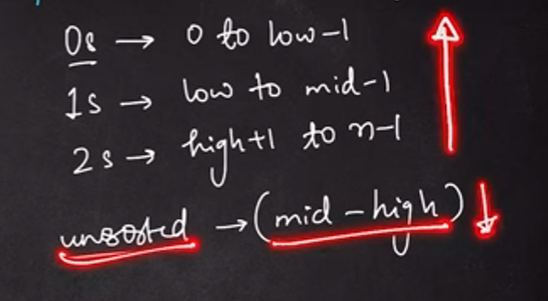 0s → 0 to low-1
1s → low to mid-1
2s → high+1 to n-1
unsorted → (mid - high)